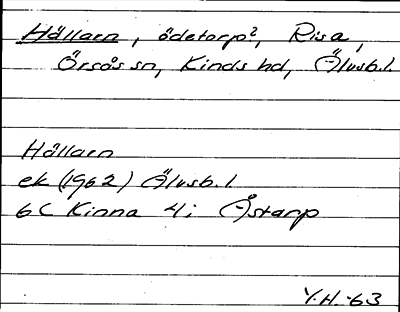 Hällarn, ödetorp?, Risa,
Örsås sn, Kinds hd, Älvsb.l.
Hällarn
ek (1962) Älvsb.l.
6C Kinna 4i Åstarp
Y.H. -63